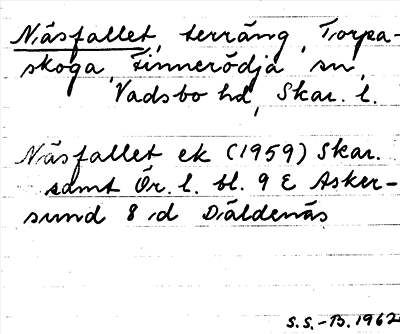 Näsfallet, terräng, Torpa-
skoga, Finnerödja sn,
Vadsbo hd, Skar. l.
Näsfallet ek (1959) Skar.
samt Ör. l. bl. 9 E Asker-
sund 8 d Däldenäs
S.S.-B. 1962